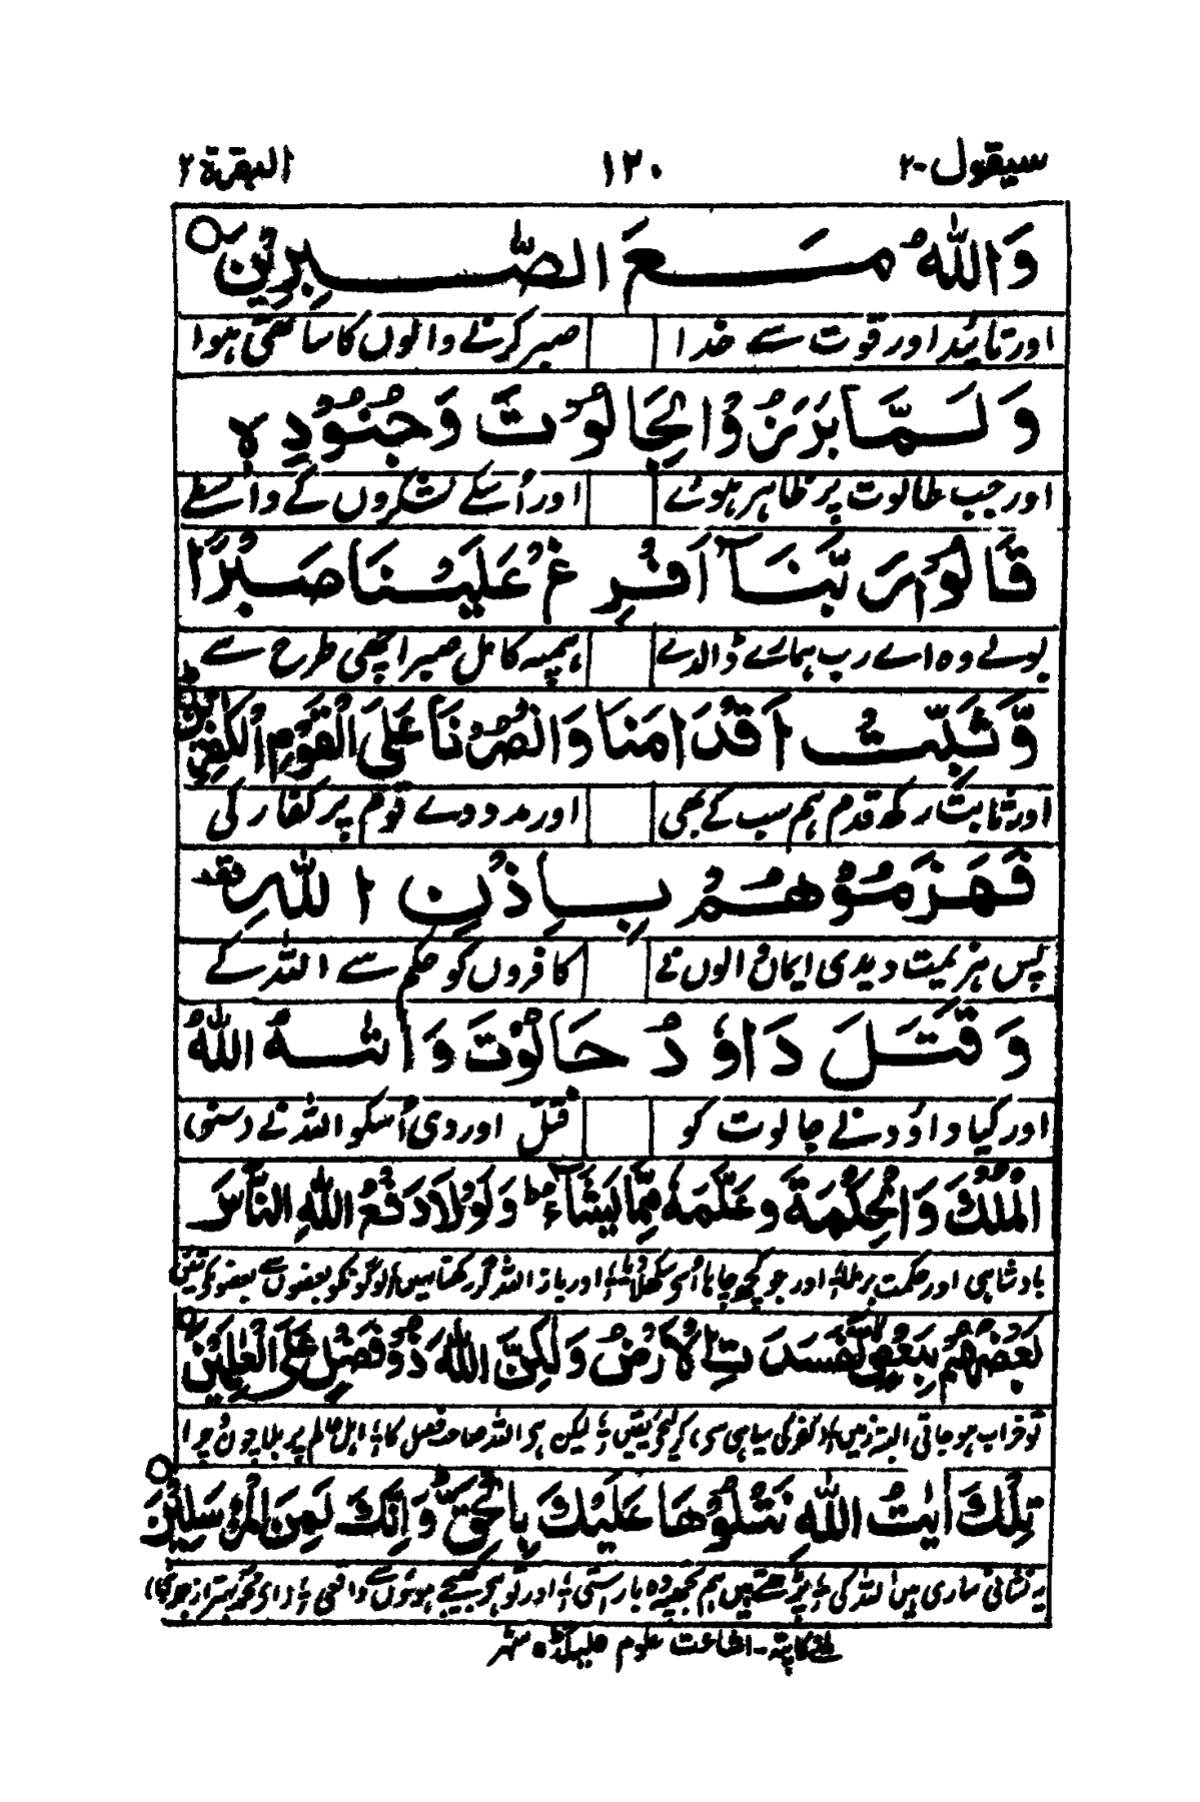 سیقول-۲ ۱۲۰ البقرة ۲
وَاللهُ مَعَ الصّٰبِرِيْنَ
اور تائید اور قوت سے خدا صبر کرنے والوں کا ساتھی ہوا
وَلَمَّا بَرَزُوْا لِجَالُوْتَ وَجُنُوْدِهٖ
اور جب طالوت پر ظاہر ہوئے اور اُسکے لشکروں کے واسطے
قَالُوْا رَبَّنَآ اَفْرِغْ عَلَيْنَا صَبْرًا
بولے وہ اے رب ہمارے ڈالدے ہمپہ کامل صبر اچھی طرح سے
وَّثَبِّتْ اَقْدَامَنَا وَانْصُرْنَا عَلَى الْقَوْمِ الْكٰفِرِيْنَ
اور ثابت رکھ قدم ہم سب کے بھی اور مدد دے قوم پر کفار کی
فَهَزَمُوْهُمْ بِاِذْنِ اللهِ
پس ہزیمت دیدی ایمان والوں نے کافروں کو حکم سے اللہ کے
وَقَتَلَ دَاوٗدُ جَالُوْتَ وَاٰتٰىهُ اللهُ
اور کیا داؤد نے جالوت کو قتل اور دی اُسکو اللہ نے
الْمُلْكَ وَالْحِكْمَةَ وَعَلَّمَهٗ مِمَّا يَشَآءُ ؕ وَلَوْلَا دَفْعُ اللهِ النَّاسَ
بادشاہی اور حکمت اور جو کچھ چاہا اُسے اور باز اللہ گر رکھتا نہیں لوگونکو بعضوں سے
بَعْضَهُمْ بِبَعْضٍ لَّفَسَدَتِ الْاَرْضُ وَلٰكِنَّ اللهَ ذُوْ فَضْلٍ عَلَى الْعٰلَمِيْنَ
تو خراب ہو جاتی البتہ زمین لیکن اللہ فضل کا اہل عالم پر
تِلْكَ اٰيٰتُ اللهِ نَتْلُوْهَا عَلَيْكَ بِالْحَقِّ ؕ وَاِنَّكَ لَمِنَ الْمُرْسَلِيْنَ
یہ نشانی ساری ہیں اللہ کی پڑھتے ہیں ہم تجھپہ وہ باراستی اور تو
ملنے کا پتہ - اشاعت علوم